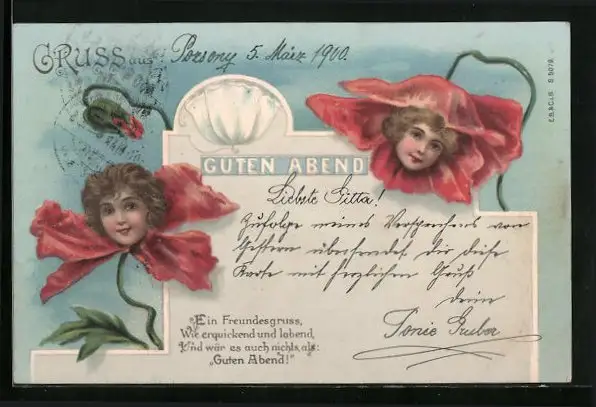 GRUSS aus Pozsony 5. März 1900.
E.B.&C.i.B. S. 5079.
GUTEN ABEND
Liebste Gitta!
Zufolge meines Versprechens von
Gestern übersendet Dir diese
Karte mit herzlichem Gruß
deine
Tonie Gruber
Ein Freundesgruss,
Wie erquickend und labend,
Und wär es auch nichts, als:
„Guten Abend!"